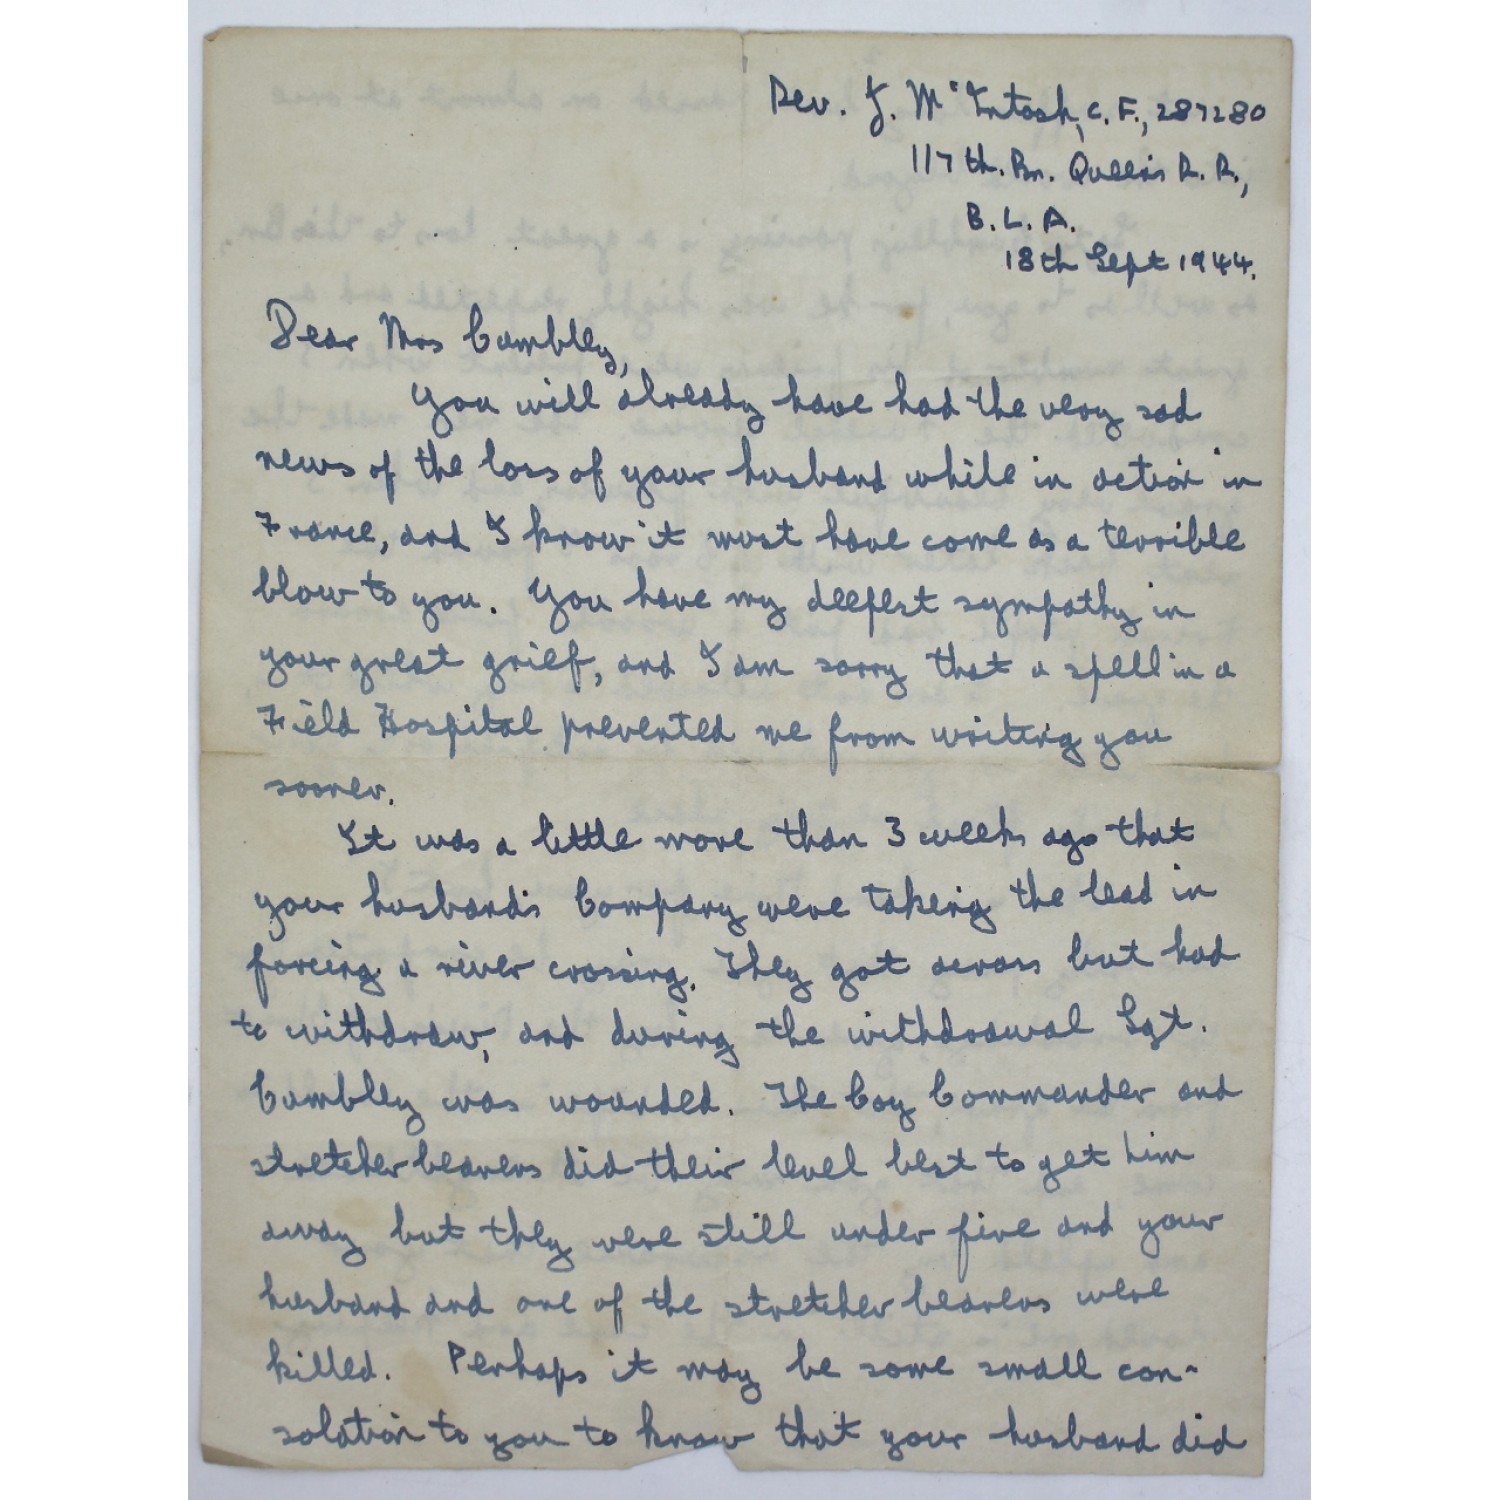 Rev. J. McIntosh, C. F., 287280
117th. Bn. Queen's R. R.,
B. L. A.
18th Sept 1944.
Dear Mrs Cumbley,
You will already have had the very sad
news of the loss of your husband while in action in
France, and I know it must have come as a terrible
blow to you. You have my deepest sympathy in
your great grief, and I am sorry that a spell in a
Field Hospital prevented me from writing you
sooner.
It was a little more than 3 weeks ago that
your husband's Company were taking the lead in
forcing a river crossing. They got across but had
to withdraw, and during the withdrawal Sgt.
Cumbley was wounded. The Coy Commander and
stretcher bearers did their level best to get him
away but they were still under fire and your
husband and one of the stretcher bearers were
killed. Perhaps it may be some small con-
solation to you to know that your husband did